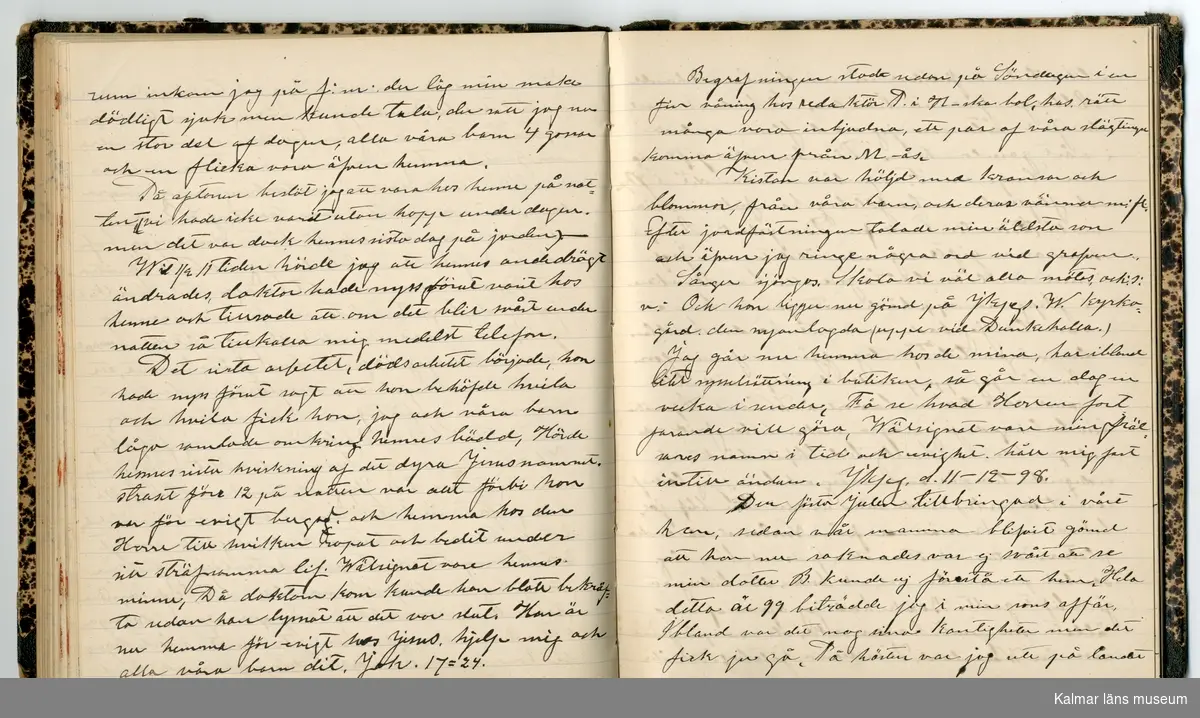 rum inkom jag på f:m: der låg min maka
dödligt sjuk men kunde tala, der satt jag nu
en stor del af dagen, alla våra barn 4 gossar
och en flicka vara äfven hemma.
På aftonen beslöt jag att vara hos henne på nat-
ten, (vi hade icke varit utan hopp under dagen.
men det var dock hennes sista dag på jorden)
Wid 1/2 11 tiden hörde jag att hennes andedrägt
ändrades, doktor hade nyss förut varit hos
henne och att om det blir svårt under
natten så tillkalla mig medelst telefon.
Det sista arbetet, dödsarbetet började, hon
hade nyss förut sagt att hon behöfde hvila
och hvila fick hon, jag och våra barn
lågo samlade omkring hennes bädd, Hörde
hennes sista hviskning af det dyra Jesusnamnet.
strakt före 12 på natten var allt förbi hon
var för evigt bergad. och hemma hos den
Herre till hvilken ropat och bedit under
sitt sträfsamma lif. Wälsignat vare hennes
minne, Då doktorn kom kunde han blott bekräf-
ta sedan han lysnat att det var slut. Hon är
nu hemma för evigt hos Jesus. hjelp mig och
alla våra barn dit. Joh. 17=24.
Begrafningen stod sedan på Söndagen i en
fin våning hos redaktör P. i H-ska bol. hus. rätt
många voro inbjudna, ett par af våra slägtingar
komma äfven från M-ås.
Kistan var höljd med kransar och
blommor, från våra barn, och deras vänner m.fl.
Efter jordfästningen talade min äldsta son
och äfven jag ringe några ord vid grafven.
Sånger sjöngos. Skola vi väl alla mötas, och: s:
v: Och hon ligger nu gömd på Jkpgs. W. kyrko-
gård, den nyanlagda (uppe vid Dunkehalla.)
Jag går nu hemma hos de mina, har ibland
litet sysselsättning i butiken, så går en dag en
vecka i sender, Få se hvad Herren fort
farande vill göra, Wälsignat vare min fräl-
sares namn i tid och evighet. håll mig fast
intill ändan. Jkpg. d. 11-12-98.
Den första Julen tillbringad i vårt
hem, sedan vår mamma blifvit gömd
att hon nu saknades var ej svårt att se
min dotter B. kunde ej förestå ett hem, Hela
detta år 99 biträdde jag i min sons affär,
Ibland var det nog små kantigheter men det
fick ju gå, På hösten var jag ute på landet
Kalmar läns museum